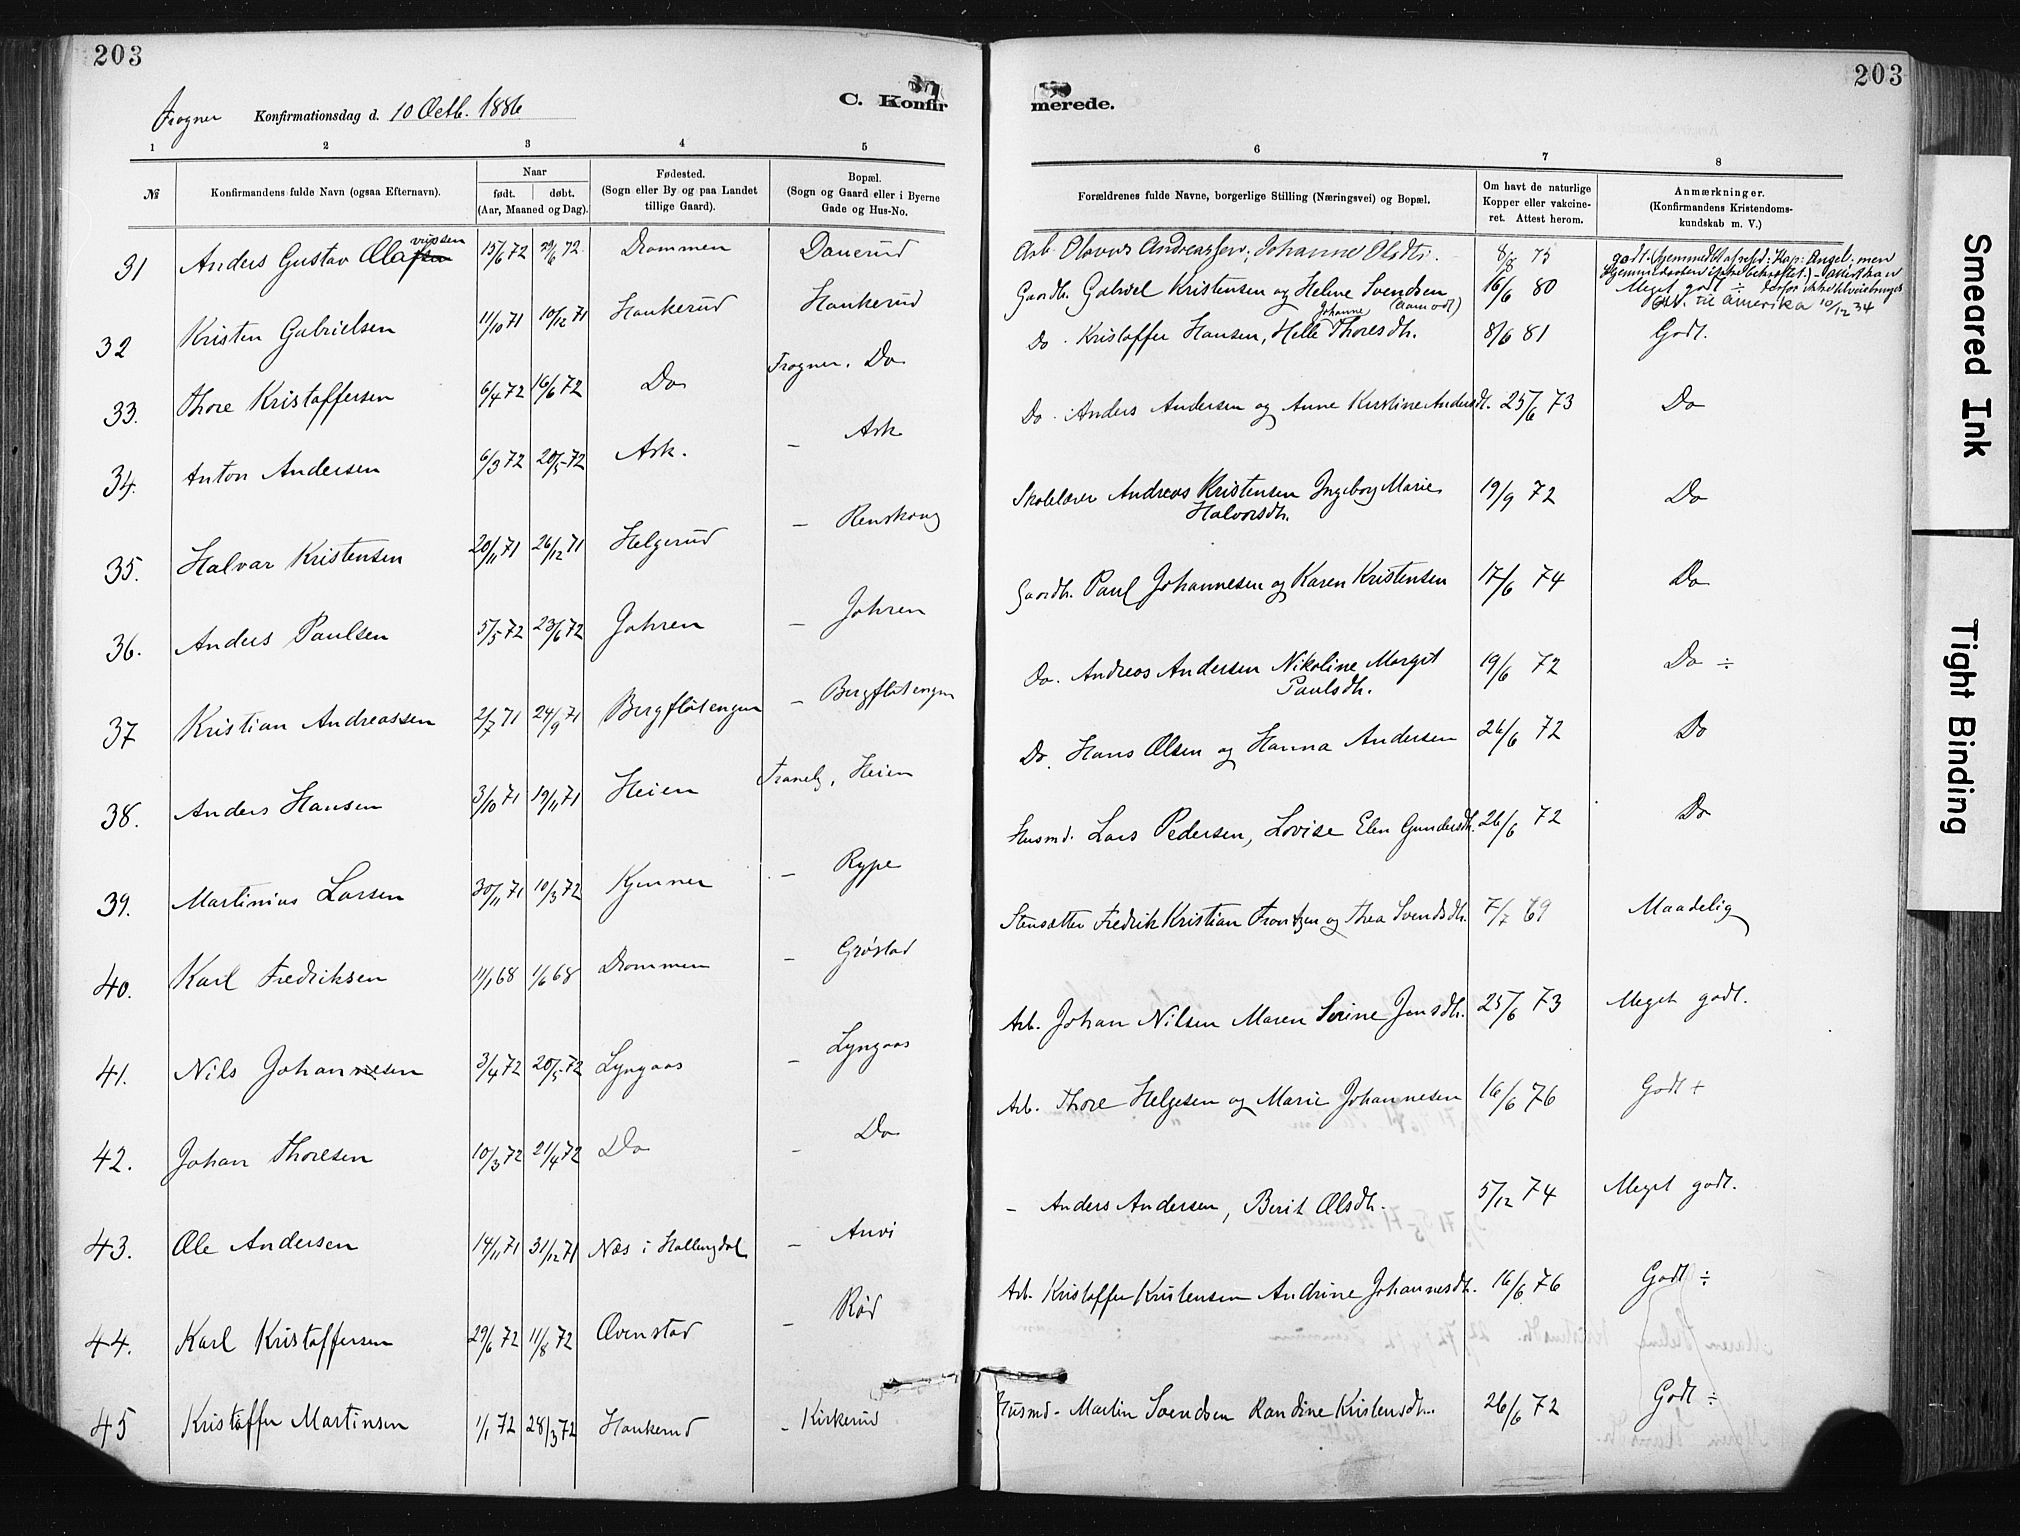 203
203
Frogner Konfirmationsdag d. 10 Octb. 1886
C. Konfir
merede.
1 2 3 4 5
6 7 8
№ Konfirmandens fulde Navn (ogsaa Efternavn). Naar født. døbt. (Aar, Maaned og Dag). Fødested. (Sogn eller By og paa Landet tillige Gaard). Bopæl. (Sogn og Gaard eller i Byerne Gade og Hus-No.
Forældrenes fulde Navne, borgerlige Stilling (Næringsvei) og Bopæl. Om havt de naturlige Kopper eller vakcineret. Attest herom. Anmærkninger. (Konfirmandens Kristendomskundskab m. V.)
31 Anders Gustav Olafsen 15/6 72 29/6 72. Drammen Dauerud
Arb. Olavus Andreassen, Johanne Olsdtr. 8/8 75 godt.
32 Kristen Gabrielsen 11/10 71 10/12 71 Haukerud Haukerud
Gaardb. Gabriel Kristensen og Helene Svendsen 16/6 80 Meget godt ÷
Utv. til Amerika 10/12 34
33. Thore Kristoffersen 6/4 72 16/6 72 Do Frogner. Do
Do. Kristoffer Hansen, Helle Johanne Thoresdtr. 8/6 81 Godt.
34. Anton Andersen 6/3 72 20/5 72 Ask. - Ask
Do. Anders Andersen og Anne Kirstine Andersdt. 25/6 73 Do
35. Halvar Kristensen 20/11 71 26/12 71 Helgerud - Renskoug
Skolelærer Andreas Kristensen Ingeborg Marie Halvorsdtr. 19/9 72 Do
36. Anders Paulsen 5/5 72 23/6 72 Jahren - Jahren
Gaardb. Paul Johannesen og Karen Kristensen 17/6 74 Do
37 Kristian Andreassen 2/7 71 24/9 71 Bergflötengen - Bergflötengen
Do. Andreas Andersen Nikoline Margit Paulsdtr. 19/6 72 Do ÷
38. Anders Hansen 3/10 71 19/11 71 Heien Tranby, Heien
Do. Hans Olsen og Hanna Andersen 26/6 72 Do
39. Martinius Larsen 30/11 71 10/3 72 Kjenner - Rype
Husmd. Lars Pedersen, Lovise Elen Gundersdtr. 26/6 72 Do
40. Karl Fredriksen 11/1 68 1/6 68 Drammen - Grøstad
Stensætter Fredrik Kristian Frantzen og Thea Svendsdtr. 7/7 69 Maadelig
41. Nils Johannesen 3/4 72 20/5 72 Lyngaas - Lyngaas
Arb. Johan Nilsen Maren Sirine Jensdtr. 25/6 73 Meget godt.
42. Johan Thoresen 10/3 72 21/4 72 Do - Do
Arb. Thore Helgesen og Marie Johannesen 16/6 76 Godt +
43. Ole Andersen 14/11 71 31/12 71 Næs i Hallingdal - Anvi
- Anders Andersen, Berit Olsdtr. 5/12 74 Meget godt.
44. Karl Kristoffersen 29/6 72 11/8 72 Ovenstad - Rød
Arb. Kristoffer Kristensen Andrine Johannesdtr. 16/6 76 Godt ÷
45 Kristoffer Martinsen 1/1 72 28/3 72 Haukerud - Kirkerud
Husmd. Martin Svendsen Randine Kristensdtr. 26/6 72 Godt ÷
Smeared Ink
Tight Binding